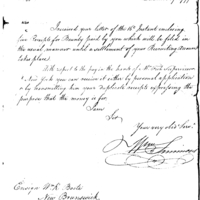 Sir,
I received your letter of the 16th Instant enclosing
two Receipts for Bounty paid by you which will be filed in
the usual manner until a settlement of your Recruiting Accounts
takes place.
With respect to the pay in the hands of
New York you can receive it either by personal application
or by transmitting him your duplicate receipts expressing the
purpose that the money is for
I am
Sir
Your very obt Serv.
Simmons
Ensign Wm R. Boote
New Brunswick